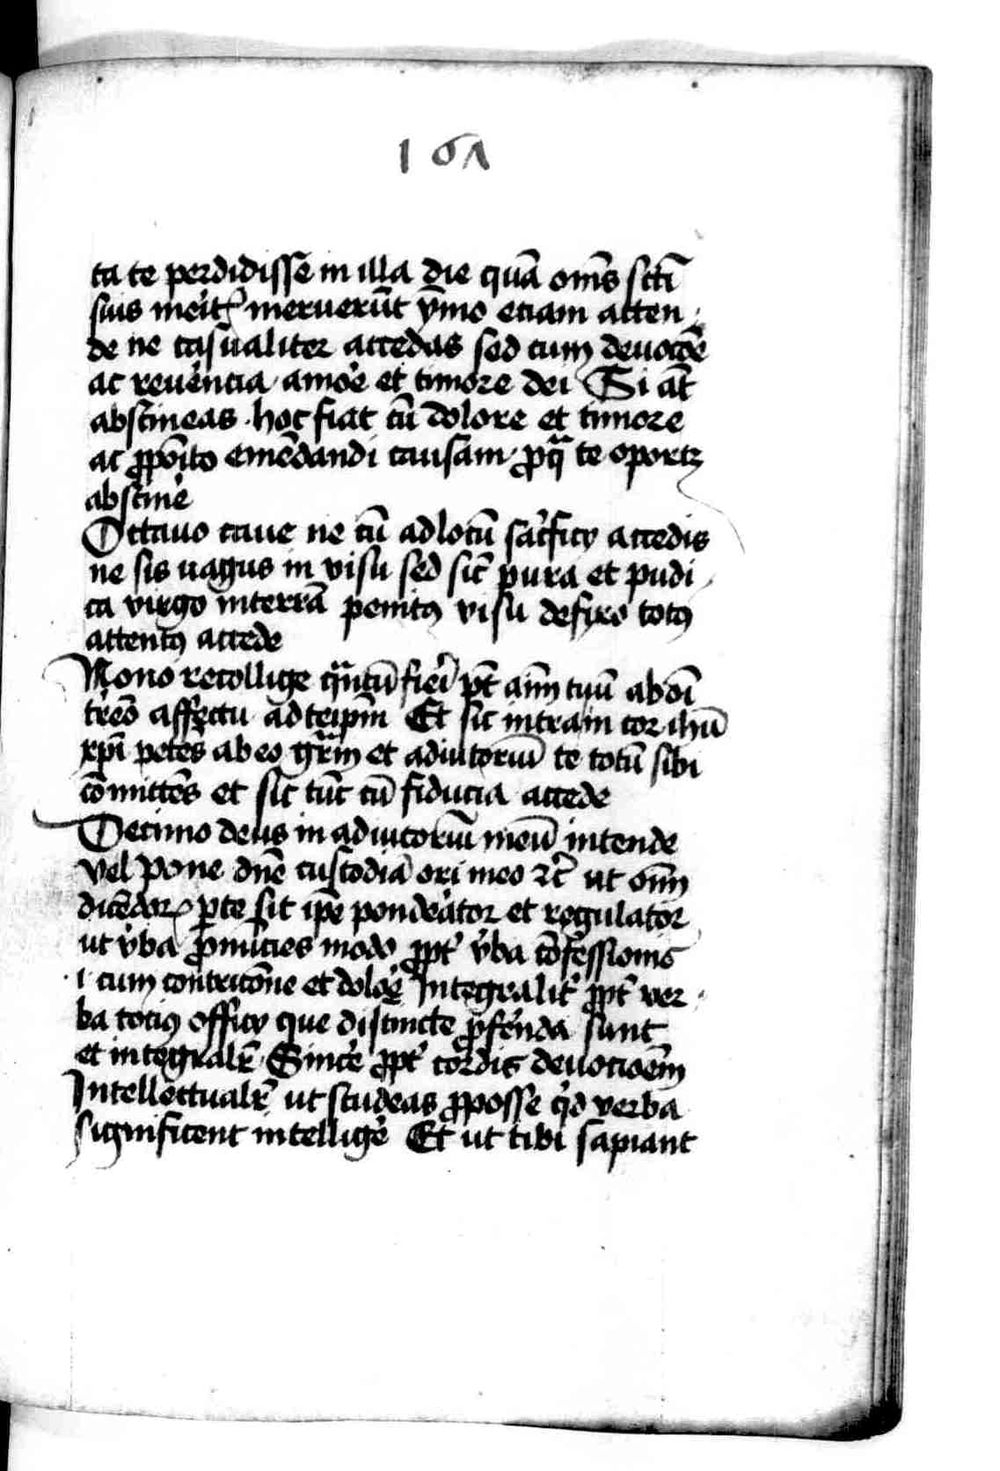 167
ta te perdidisse in illa die quā om̄s sctī
suis meit҆ meruerūt ymo etiam atten
de ne casualiter accedas sed cum deuotōe
ac reuēncia amoē et timore dei Si aūt
abstineas hoc fiat cū dolore et timore
ac ꝓpōito emēdandi causam ꝓ qͣ te oportꝫ
abstinē
Octauo caue ne cū ad locū sac͛ficij accedis
ne sis uagus in visu sed sic̄ pura et pudi
ca virgo in terrā penitꝰ visu defixo totꝰ
attentꝰ accede
Nono recollige qͣntū fieri pt̄ aīm tuū ab oī
t͛reō affectu ad teip̄m Et sic intram cor ihū
xp̄i petēs ab eo gr̄am et adiutoriū te totū sibi
cōmittēs et sic tūc cū fiducia accede
Decimo deus in adiutoriū meū intende
vel Pone dn̄e custodiā ori meo ⁊c̄ ut om̄
dicēdoꝝ per te sit ip̄e pondeātor et regulator
ut v͛ba ꝓnūcies modo ꝓpt͛ v͛ba cōfessionis
i cum contricōne et dolōe Integralit͛ ꝓpt͛ ver
ba tociꝰ officij que distincte ꝓfēnda sunt
et integralr̄ Sincē ꝓpt͛ cordis deuotioēm
Intellectualr̄ ut studeas ꝓ posse qd̄ verba
significent intelligē Et ut tibi sapiant